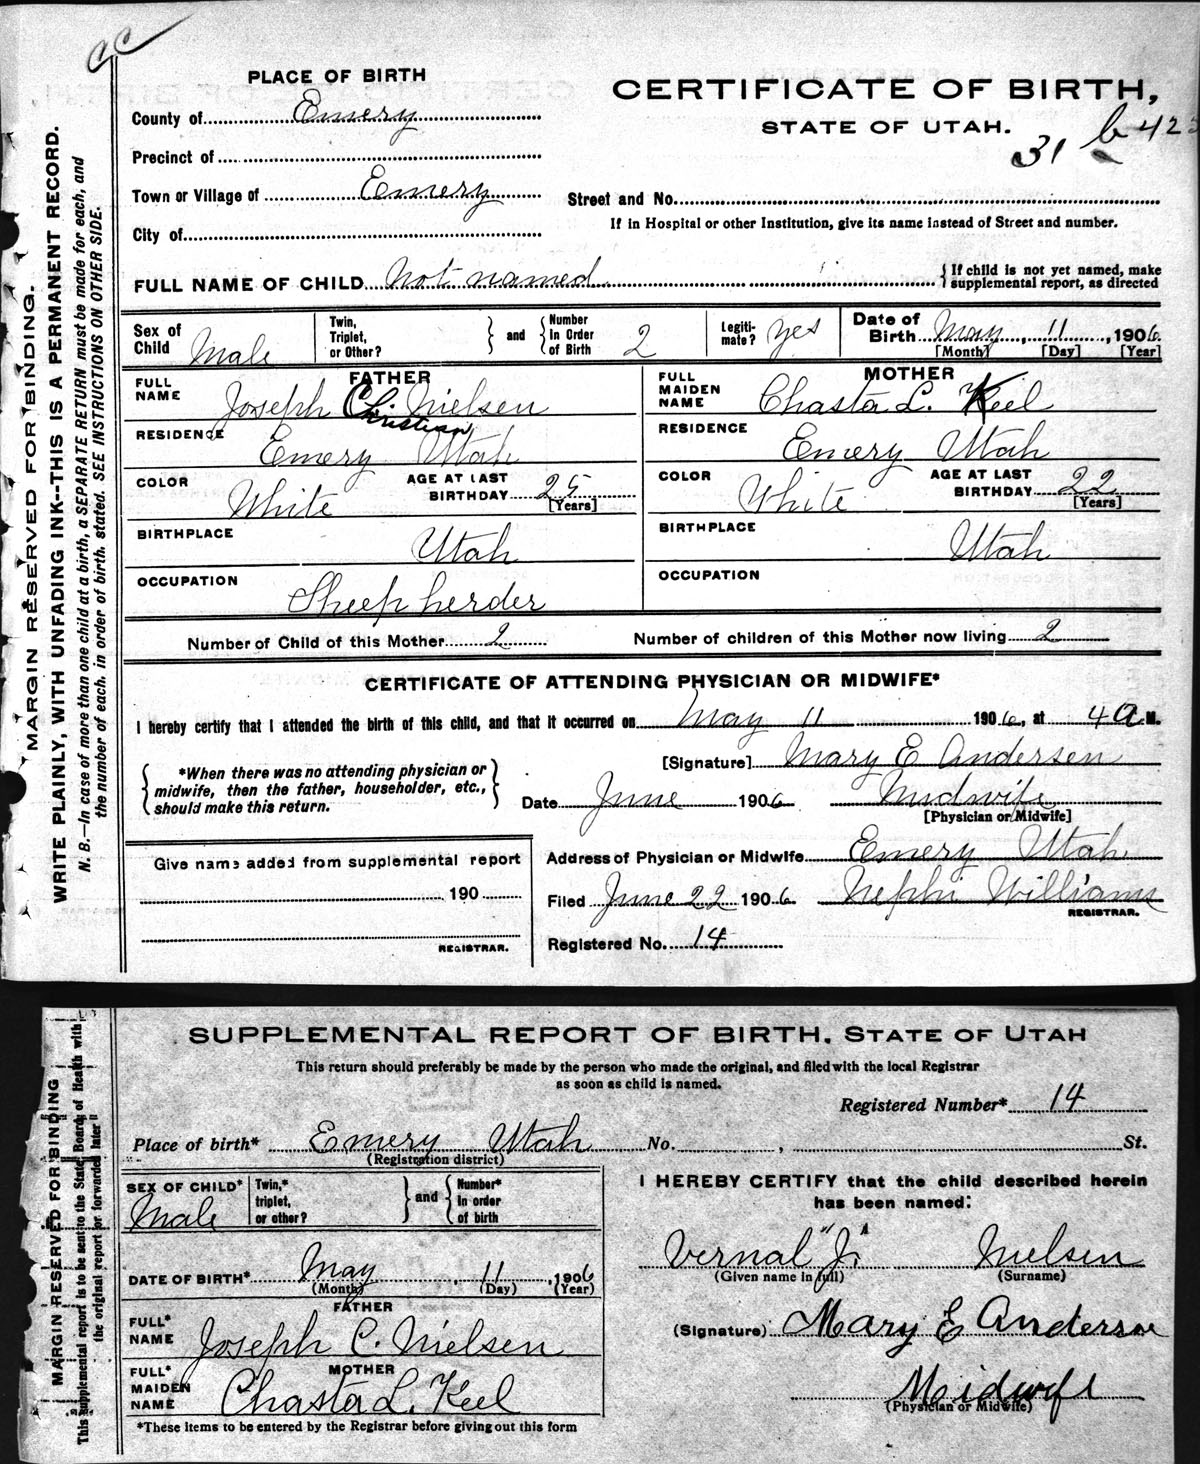 CC
PLACE OF BIRTH
CERTIFICATE OF BIRTH,
STATE OF UTAH.
31 b 422
County of Emery
Precinct of
Town or Village of Emery
Street and No.
If in Hospital or other Institution, give its name instead of Street and number.
City of
FULL NAME OF CHILD Not named
{If child is not yet named, make supplemental report, as directed
Sex of Child Male
Twin, Triplet, or Other? } and { Number In Order of Birth 2
Legitimate? yes
Date of Birth May, 11, 1906
[Month] [Day] [Year]
FATHER
FULL NAME Joseph Ch. Nielsen
Christian
RESIDENCE Emery Utah
COLOR White AGE AT LAST BIRTHDAY 25
[Years]
BIRTHPLACE Utah
OCCUPATION Sheep herder
MOTHER
FULL MAIDEN NAME Chasta L. Keel
RESIDENCE Emery Utah
COLOR White AGE AT LAST BIRTHDAY 22
[Years]
BIRTHPLACE Utah
OCCUPATION
Number of Child of this Mother 2 Number of children of this Mother now living 2
CERTIFICATE OF ATTENDING PHYSICIAN OR MIDWIFE*
I hereby certify that I attended the birth of this child, and that it occurred on May 11 1906, at 4 a M.
{ *When there was no attending physician or midwife, then the father, householder, etc., should make this return. }
[Signature] Mary E Andersen
Date June 1906 Midwife
[Physician or Midwife]
Give name added from supplemental report
190
REGISTRAR.
Address of Physician or Midwife Emery Utah
Filed June 22 1906 Nephi Williams
REGISTRAR.
Registered No. 14
MARGIN RESERVED FOR BINDING.
WRITE PLAINLY, WITH UNFADING INK--THIS IS A PERMANENT RECORD.
N. B.—In case of more than one child at a birth, a SEPARATE RETURN must be made for each, and
the number of each, in order of birth, stated. SEE INSTRUCTIONS ON OTHER SIDE.
SUPPLEMENTAL REPORT OF BIRTH. STATE OF UTAH
This return should preferably be made by the person who made the original, and filed with the local Registrar
as soon as child is named.
Registered Number* 14
Place of birth* Emery Utah No. , St.
(Registration district)
SEX OF CHILD* Male
Twin,* triplet, or other? } and { Number* In order of birth
DATE OF BIRTH* May, 11, 1906
(Month) (Day) (Year)
FATHER
FULL* NAME Joseph C. Nielsen
MOTHER
FULL* MAIDEN NAME Chasta L. Keel
*These items to be entered by the Registrar before giving out this form
I HEREBY CERTIFY that the child described herein
has been named:
Vernal "J." Nielsen
(Given name in full) (Surname)
(Signature) Mary E Anderson
Midwife
(Physician or Midwife)
MARGIN RESERVED FOR BINDING
This supplemental report is to be sent to the State Board of Health with
the original report or forwarded later"